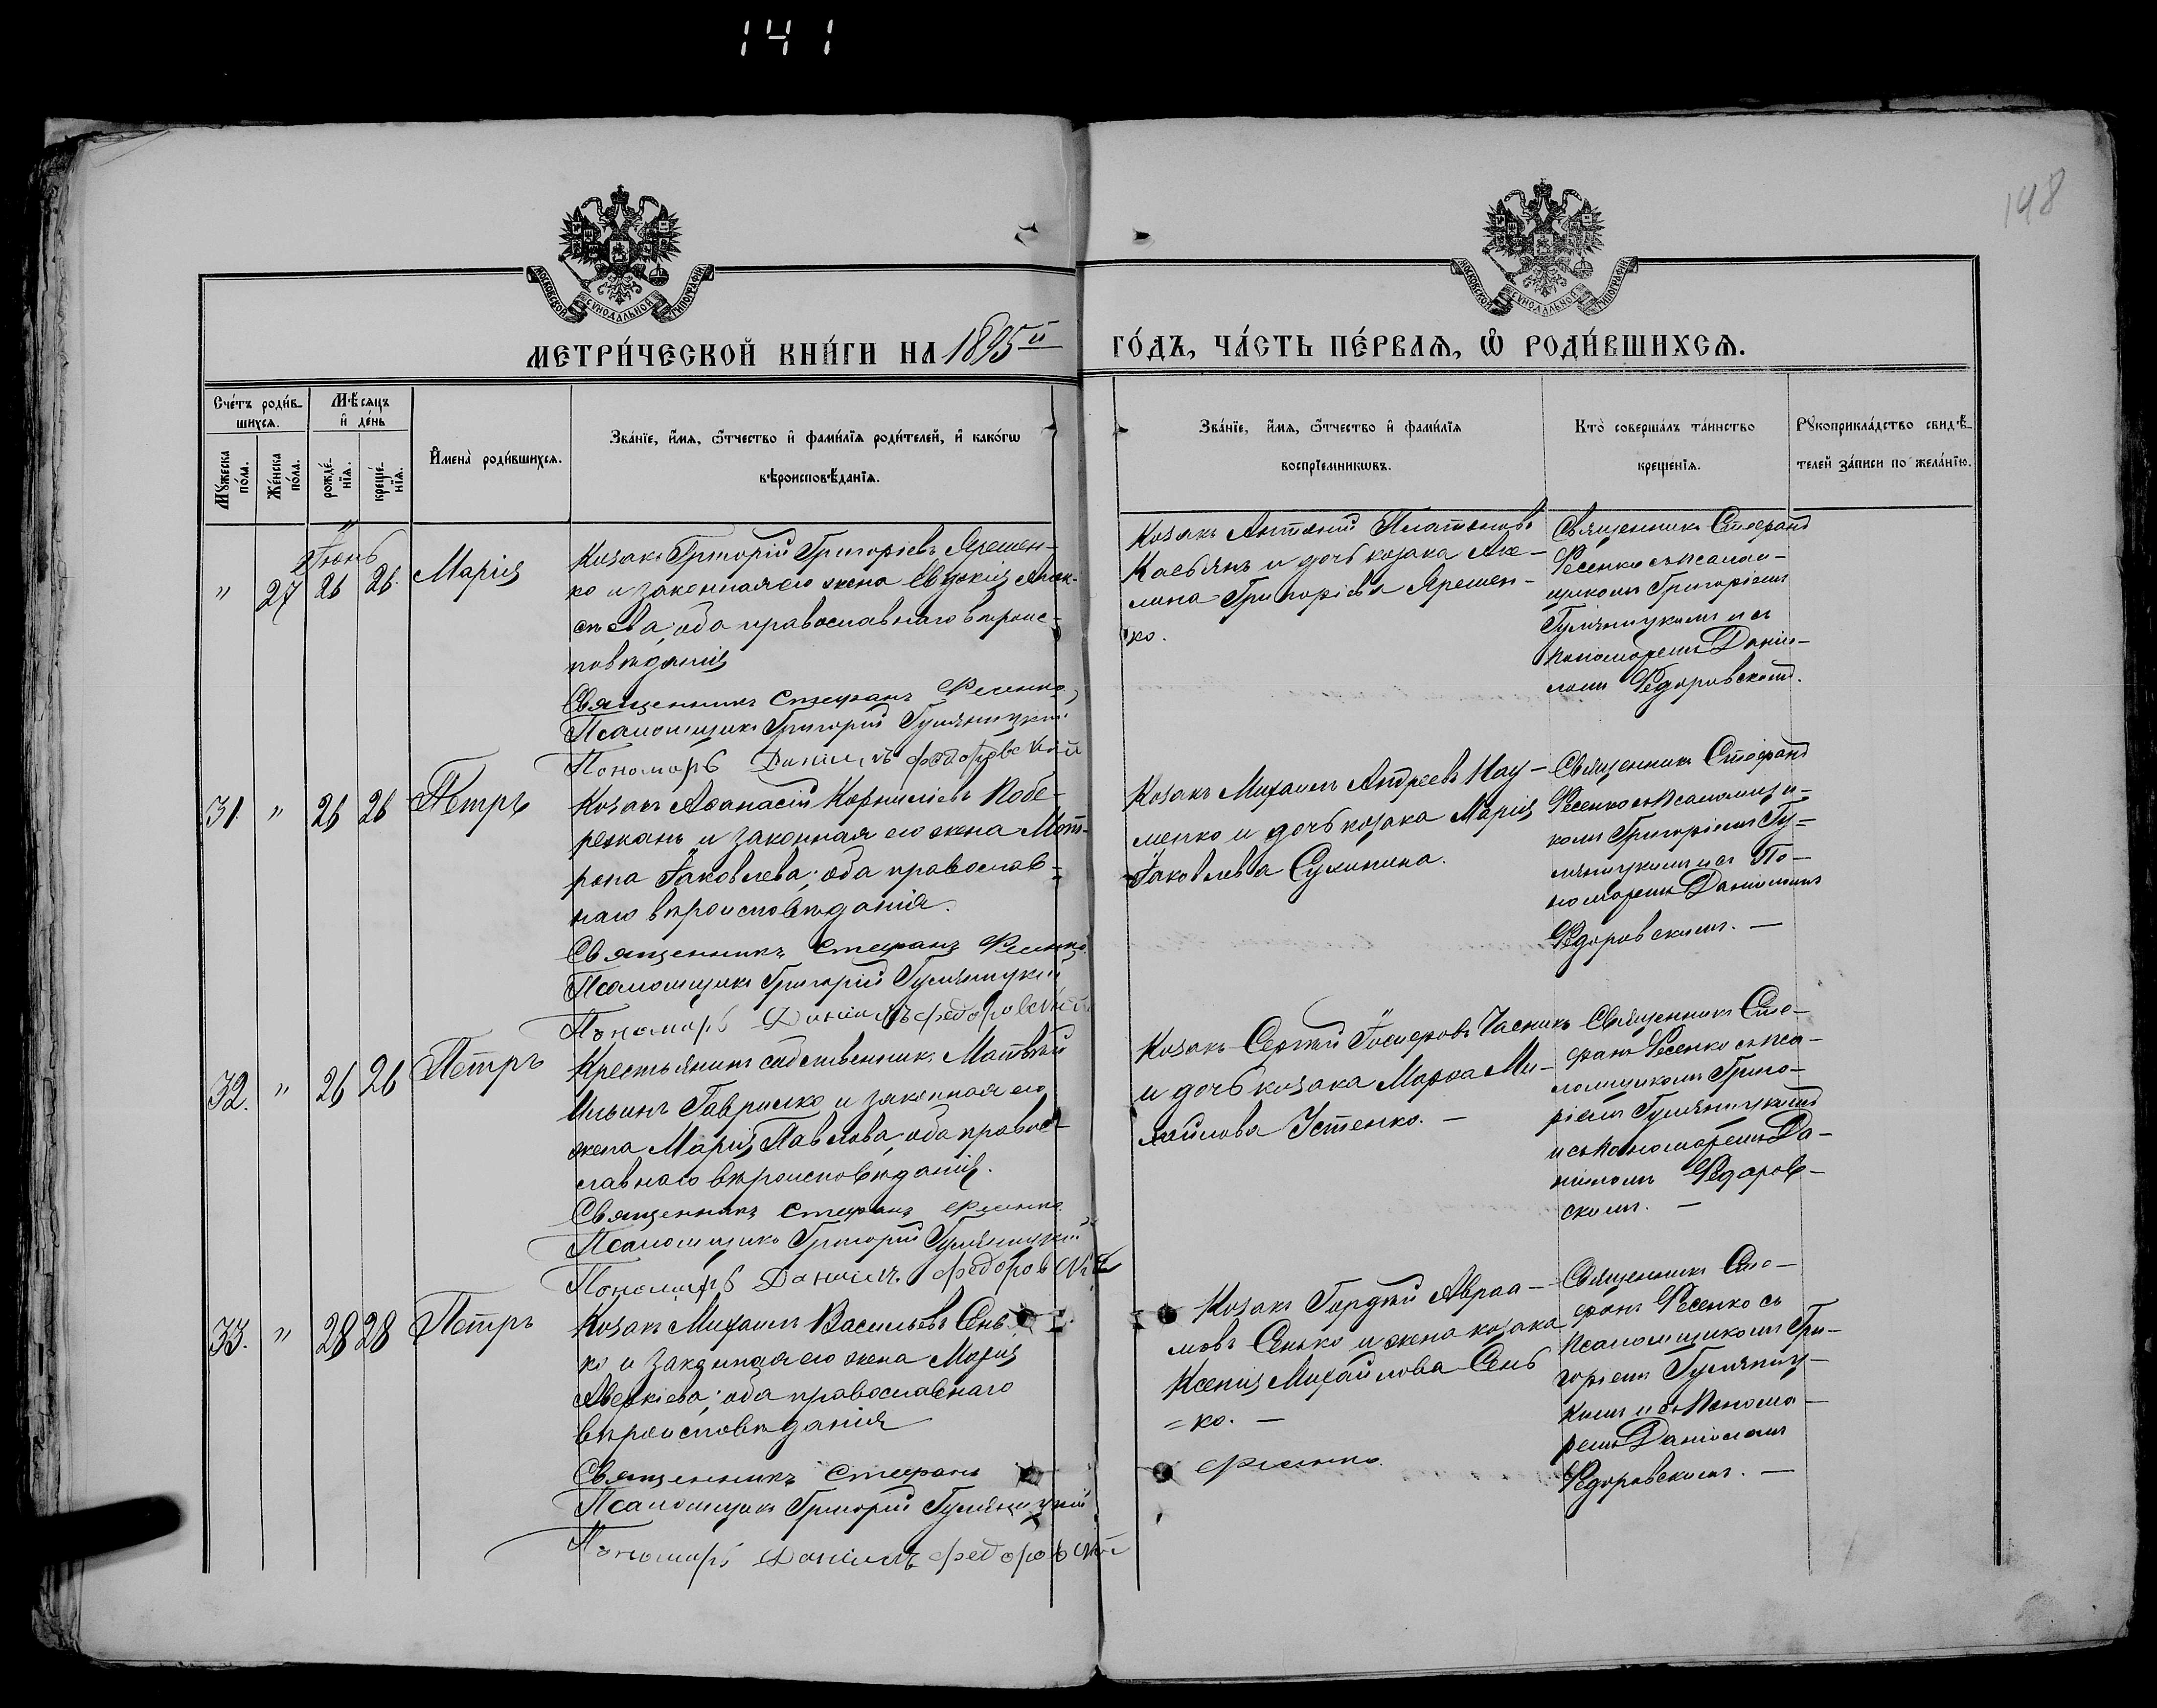 141
148
МОСКОВСКОЙ СѴНОДАЛЬНОЙ ТИПОГРАФІИ
МОСКОВСКОЙ СѴНОДАЛЬНОЙ ТИПОГРАФІИ
МЕТРИ́ЧЕСКОЙ КНИ́ГИ НА 1895й ГО́ДЪ, ЧА́СТЬ ПЕ́РВАѦ, Ѡ РОДИ́ВШИХСѦ.
Сче́тъ роди́в-
шихсѧ.
Мꙋжеска
по́ла.
Же́нска
по́ла.
Мѣ́сѧцъ
и҆ де́нь
рожде́-
нїѧ.
креще́-
нїѧ.
И҆мена̀ роди́вшихсѧ.
Зва́нїе, и҆́мѧ, ѻ҆́тчество и҆ фами́лїѧ роди́телей, и҆ како́гѡ
вѣроисповѣ́данїѧ.
Зва́нїе, и҆́мѧ, ѻ҆́тчество и҆ фами́лїѧ
воспрїе́мникѡвъ.
Кто̀ соверша́лъ та́инство
креще́нїѧ.
Рꙋкоприкла́дство свидѣ́-
телей за́писи по жела́нїю.
Іюнь
" 27 26 26. Марія
Козакъ Григорій Григоріевъ Ярешен-
ко и законная его жена Евдокія
ева, оба православнаго вѣроис-
повѣданія
Священникъ Стефанъ Фесенко,
Псаломщикъ Григорій Гумяницкій
Пономарь Даніилъ Федоровскій
Козакъ Антоній Платоновъ
Касьянъ и дочь козака Аку-
лина Григоріева Ярешен-
ко.
Священникъ Стефанъ
Фесенко съ псалом-
щикомъ Григоріемъ
Гумяницкимъ и съ
пономаремъ Данiи-
ломъ Федоровскимъ.
31. " 26 26 Петръ
Козакъ Аѳанасій Корниліевъ Побе-
режанъ и законная его жена Мот-
рона Яковлева; оба православ-
наго вѣроисповѣданія.
Священникъ Стефанъ Фесенко.
Псаломщикъ Григорій Гумяницкій
Пономарь Даніилъ Федоровскій
Козакъ Михаилъ Андреевъ Нау-
менко и дочь козака Марія
Яковлева Сулимина.
Священникъ Стефанъ
Фесенко съ псаломщи-
комъ Григоріемъ Гу-
мяницкимъ и съ По-
номаремъ Даніиломъ
Федоровскимъ. —
32. " 26 26 Петръ
Крестьянинъ собственникъ Матвѣй
Ильинъ Гаврилко и законная его
жена Марія Павлова, оба правос-
лавнаго вѣроисповѣданія.
Священникъ Стефанъ Фесенко
Псаломщикъ Григорій Гумяницкій
Пономарь Даніилъ Федоровскій
Козакъ Сергѣй Іосифовъ Часникъ
и дочь козака Марѳа Ми-
хайлова Устенко. —
Священникъ Сте-
фанъ Фесенко съ пса-
ломщикомъ Григо-
ріемъ Гумяницкимъ
и съ пономаремъ Да-
ніиломъ Федоров-
скимъ. —
33. " 28 28 Петръ
Козакъ Михаилъ Васильевъ Сень-
ко и законная его жена Марія
Аверкіева; оба православнаго
вѣроисповѣданія
Священникъ Стефанъ Фесенко.
Псаломщикъ Григорій Гумяницкій
Пономарь Даніилъ Федоровскій
Козакъ Гордѣй Авраа-
мовъ Сенько и жена козака
Ксенія Михайлова Сень
=ко. —
Священникъ Сте-
фанъ Фесенко съ
псаломщикомъ Гри-
горіемъ Гумяниц-
кимъ и съ Понома-
ремъ Даніиломъ
Федоровскимъ. —